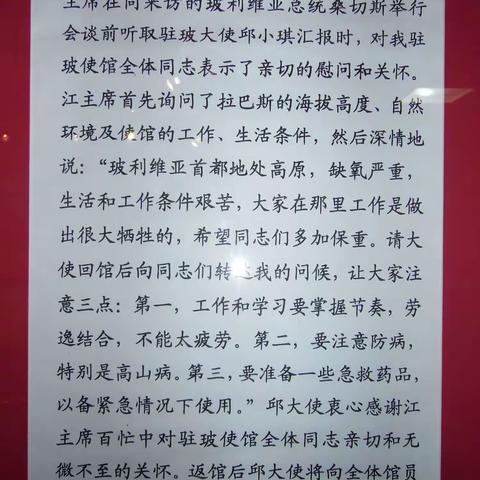 主席在同来访的玻利维亚总统桑切斯举行
会谈前听取驻玻大使邱小琪汇报时，对我驻
玻使馆全体同志表示了亲切的慰问和关怀。
江主席首先询问了拉巴斯的海拔高度、自然
环境及使馆的工作、生活条件，然后深情地
说：“玻利维亚首都地处高原，缺氧严重，
生活和工作条件艰苦，大家在那里工作是做
出很大牺牲的，希望同志们多加保重。请大
使回馆后向同志们转达我的问候，让大家注
意三点：第一，工作和学习要掌握节奏，劳
逸结合，不能太疲劳。第二，要注意防病，
特别是高山病。第三，要准备一些急救药品，
以备紧急情况下使用。”邱大使衷心感谢江
主席百忙中对驻玻使馆全体同志亲切和无
微不至的关怀。返馆后邱大使将向全体馆员